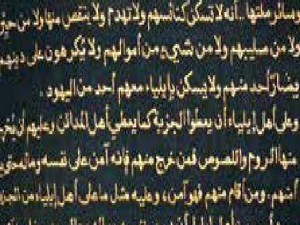 وسائر ملتها .. أنه لا تسكن كنائسهم ولا تهدم ولا ينتقص منها ولا من حيزها
ولا من صليبهم ولا من شيء من أموالهم ولا يُكرهون على دينهم
يضار أحد منهم ولا يسكن بإيلياء معهم أحد من اليهود .
وعلى أهل إيلياء أن يعطوا الجزية كما يعطي أهل المدائن وعليهم أن يُخرجوا
منها الروم واللصوص فمن خرج منهم فإنه آمن على نفسه وماله حتى
أمنهم .. ومن أقام منهم فهو آمن ، وعليه مثل ما على أهل إيلياء من الجزية